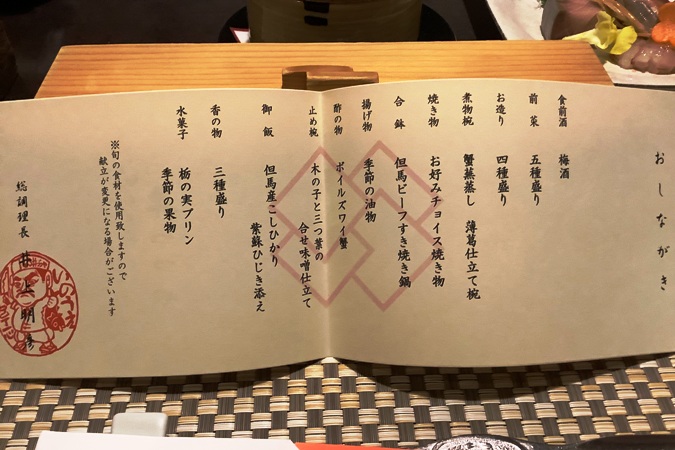 おしながき
食前酒 梅酒
前菜 五種盛り
お造り 四種盛り
煮物椀 蟹蒸蒸し 薄葛仕立て椀
焼き物 お好みチョイス焼き物
合鉢 但馬ビーフすき焼き鍋
揚げ物 季節の油物
酢の物 ボイルズワイ蟹
止め椀 木の子と三つ葉の
合せ味噌仕立て
御飯 但馬産こしひかり
紫蘇ひじき添え
香の物 三種盛り
水菓子 栃の実プリン
季節の果物
※旬の食材を使用致しますので
献立が変更になる場合がございます
総調理長 井上明彦